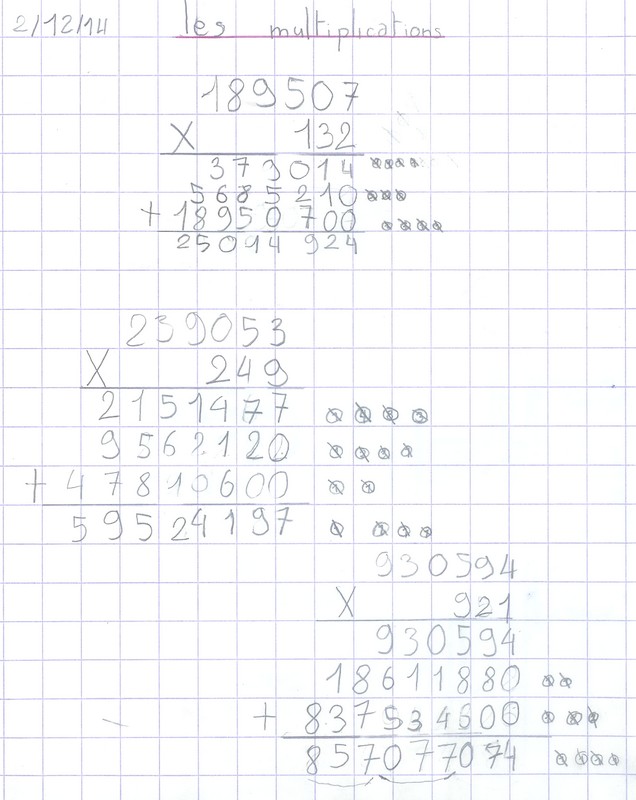 2/12/14 les multiplications
189507
X 132
379014
5685210
+ 18950700
25014924
239053
X 249
2151477
9562120
+ 47810600
59524197
930594
X 921
930594
18611880
+ 837534600
857077074